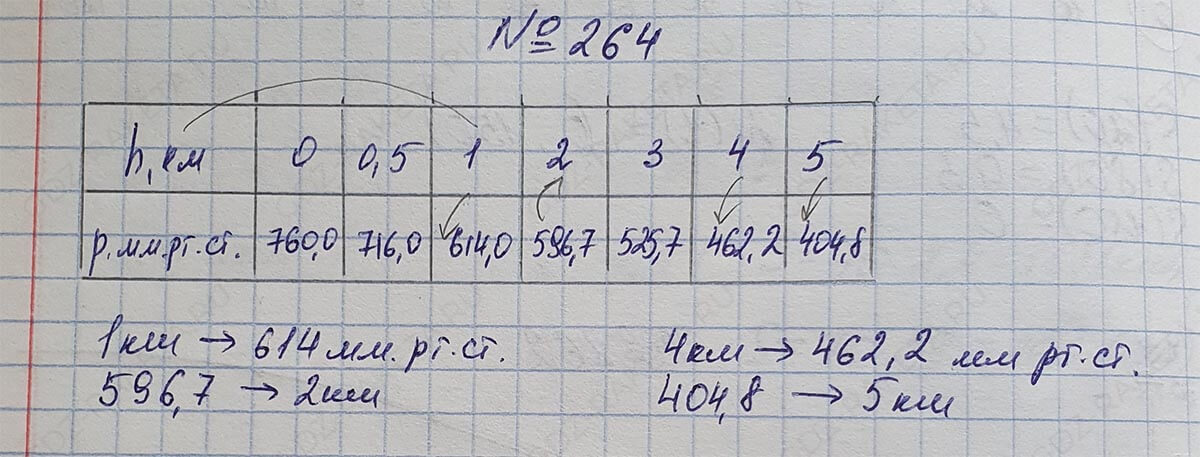 № 264
h, км 0 0,5 1 2 3 4 5
р.мм.рт.ст. 760,0 716,0 614,0 596,7 525,7 462,2 404,8
1км → 614 мм. рт.ст.
596,7 → 2км
4км → 462,2 мм рт.ст.
404,8 → 5км